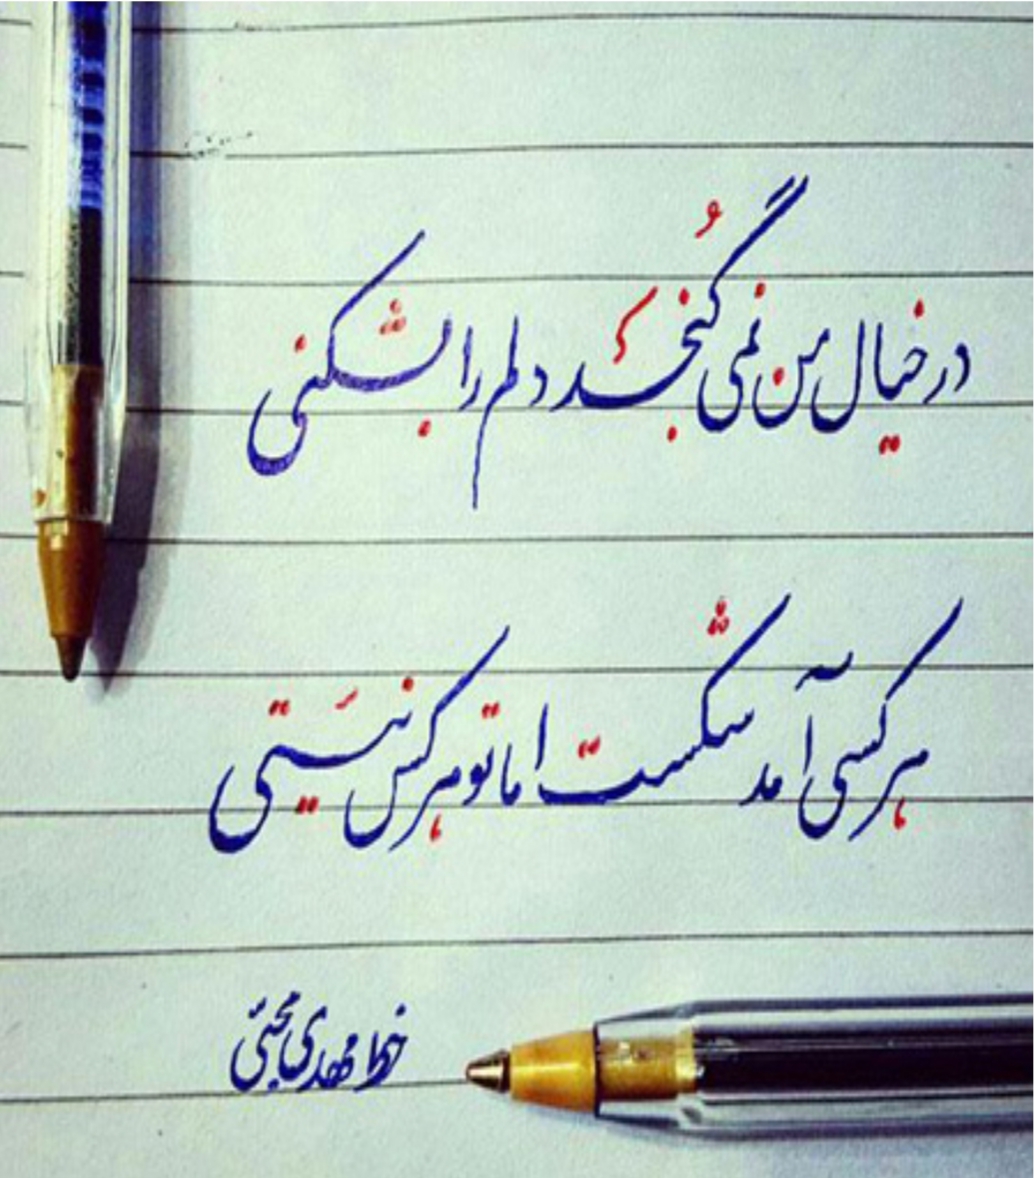 در خیال من نمی گُنجد دلم را بشکنی
هر کسی آمد شکست اما تو هر کس نیستی
خط مهدی